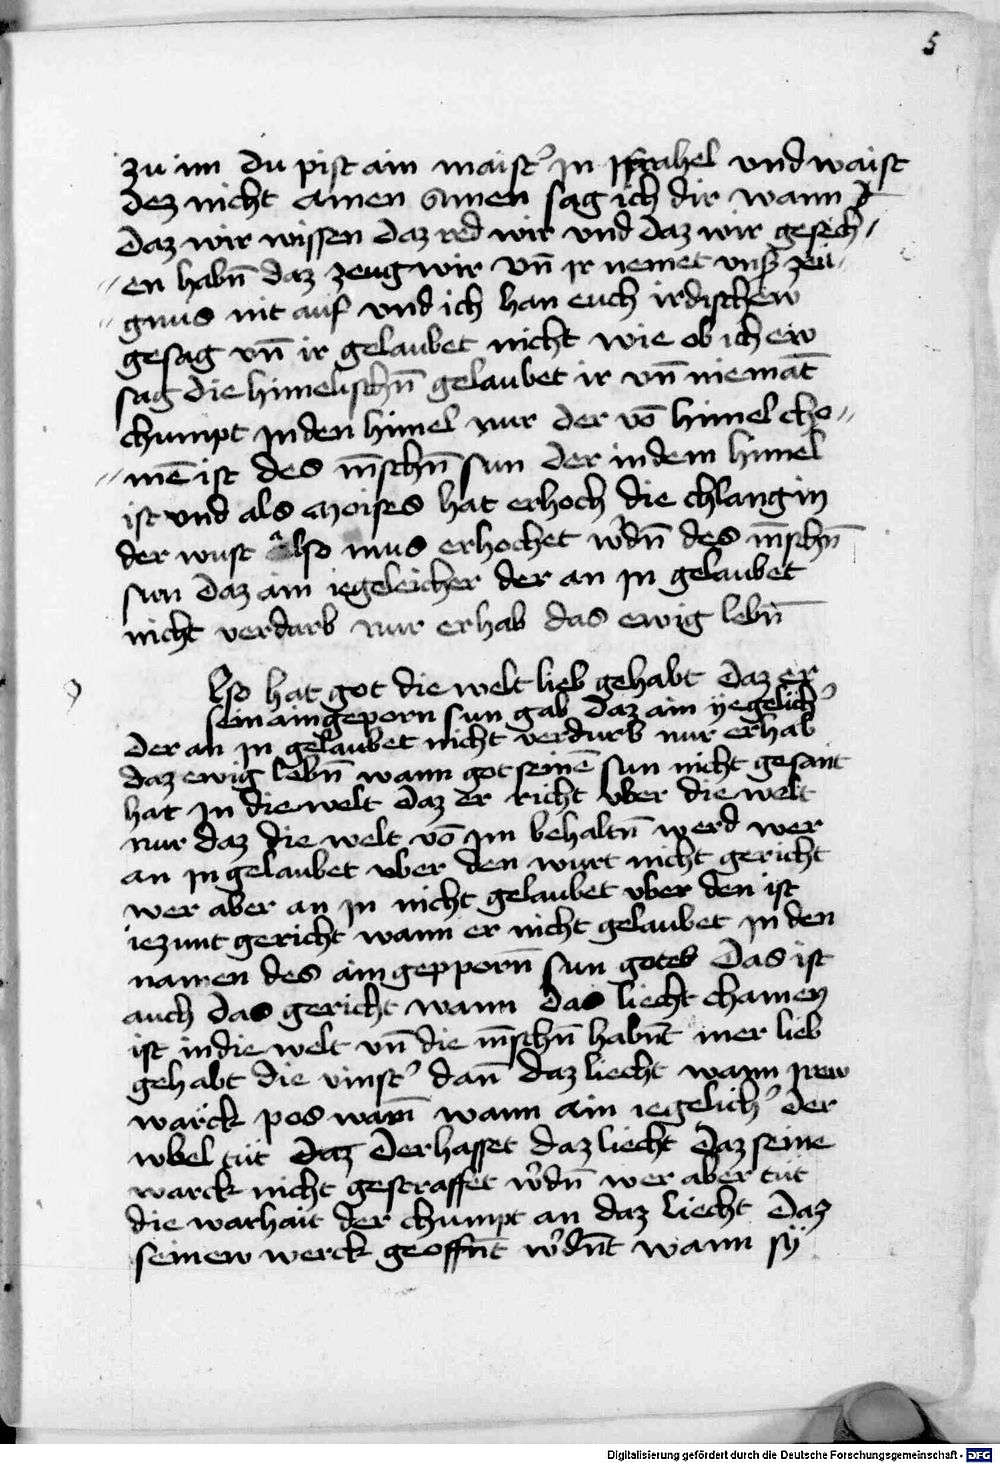 5
zu im du pist ain maist' in Israhel und waist
dez nicht amen Amen sag ich dir wann
daz wir wissen daz red wir und daz wir gesech⸗
en habn̄ daz zeug wir vn̄ ir nemet vns' zeu⸗
gnus nit auf vnd ich han euch irdischew
gesag vn̄ ir gelaubet nicht wie ob ich ew
sag die himelischn̄ gelaubet ir vn̄ niemāt
chumpt in den himel nur der vō himel cho⸗
mē ist des m̄schn̄ sun der in dem himel
ist vnd als Moises hat erhoch die chlang in
der wust Also mus erhochet w'dn̄ des m̄schn̄
sun daz ain iegeleicher der an in gelaubet
nicht verdarb nur erhab das ewig lebn̄
lso hat got die welt lieb gehabt daz er
sein aingeporn sun gab daz ain yegelich'
der an in gelaubet nicht verdurb nur erhab
daz ewig lebn̄ wann got seinē sun nicht gesant
hat in die welt daz er richt vber die welt
nur daz die welt vō im behaltn̄ werd wer
an in gelaubet vber den wurt nicht gericht
wer aber an in nicht gelaubet vber den ist
iezunt gericht wann er nicht gelaubet in den
namen des aingepporn̄ sun gotes Das ist
auch das gericht wann das liecht chamen
ist in die welt vn̄ die m̄schn̄ habn̄t mer lieb
gehabt die vinst' dan̄ daz liecht wann irew
warck pos warn̄ wann ain iegelich' der
vbel tut daz der hasset daz liecht daz seine
warck nicht gestraffet w'dn̄ wer aber tut
die warhait der chumpt an daz liecht daz
seinew werck geoffn̄t w'dn̄t wann sÿ
Digitalisierung gefördert durch die Deutsche Forschungsgemeinschaft - DFG